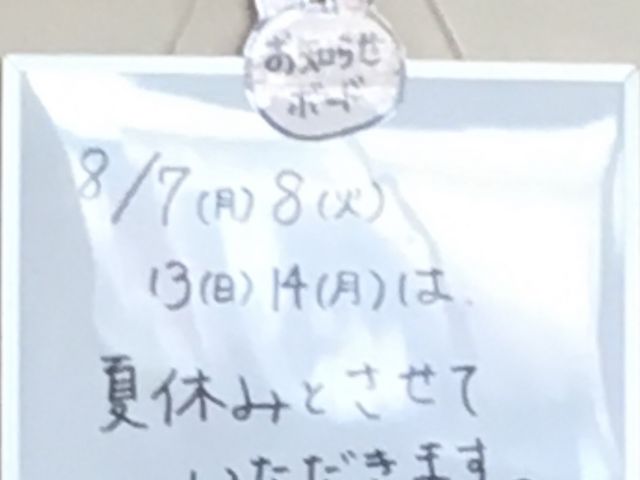 お知らせ
ボード
8/7(月)8(火)
13(日)14(月)は、
夏休みとさせて
いただきます。